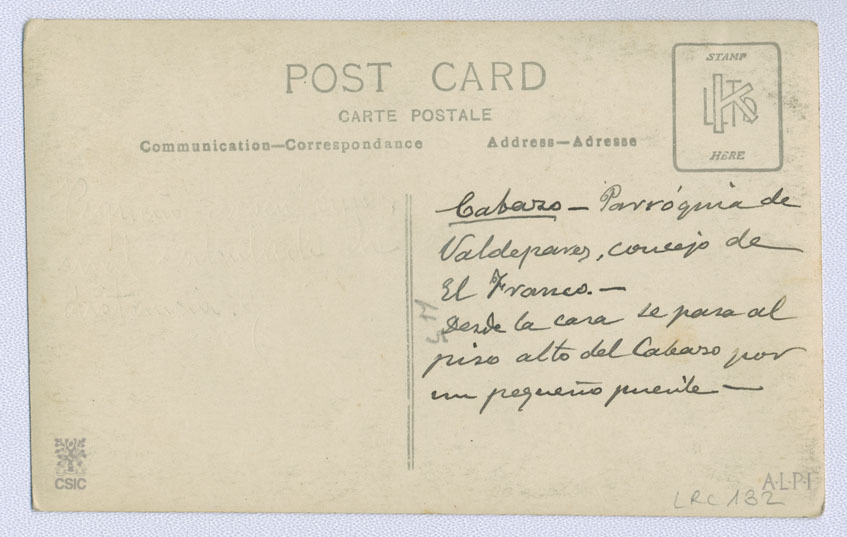 POST CARD
CARTE POSTALE
Communication—Correspondance
Address—Adresse
STAMP
HERE
Cabazo — Parróquia de
Valdepares, concejo de
El Franco.—
Desde la casa se pasa al
piso alto del Cabazo por
un pequeño puente —
CSIC
A·L·P·I
LRC 132